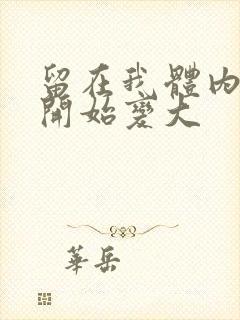 留在我體內
開始變大
華岳